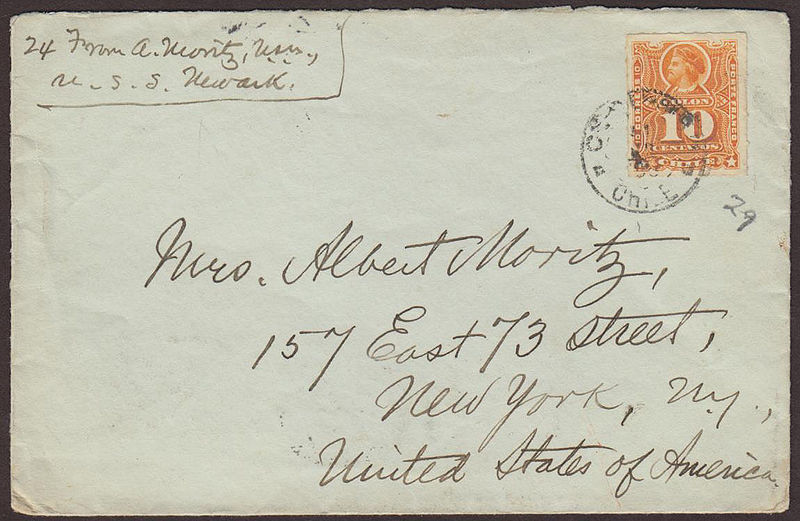 24 From A. Moritz, U.S.N.,
U. S. S. Newark.
COLON
CORREOS
PORTE FRANCO
10
CENTAVOS
CHILE
CHILE
29
Mrs. Albert Moritz,
157 East 73 Street,
New York, N.Y.,
United States of America.